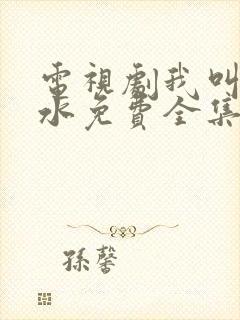 電視劇我叫
水免費全集
孫馨